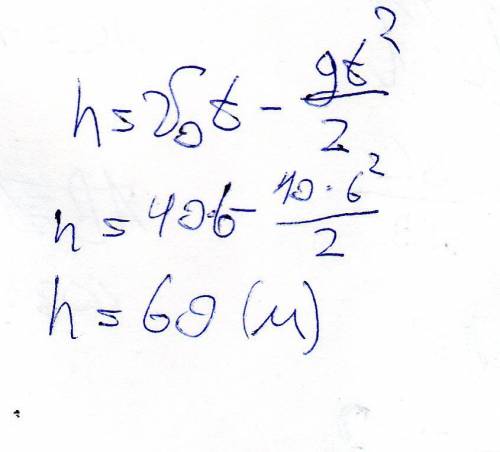 h = v₀t - gt²/2
h = 40·6 - 10·6²/2
h = 60 (м)